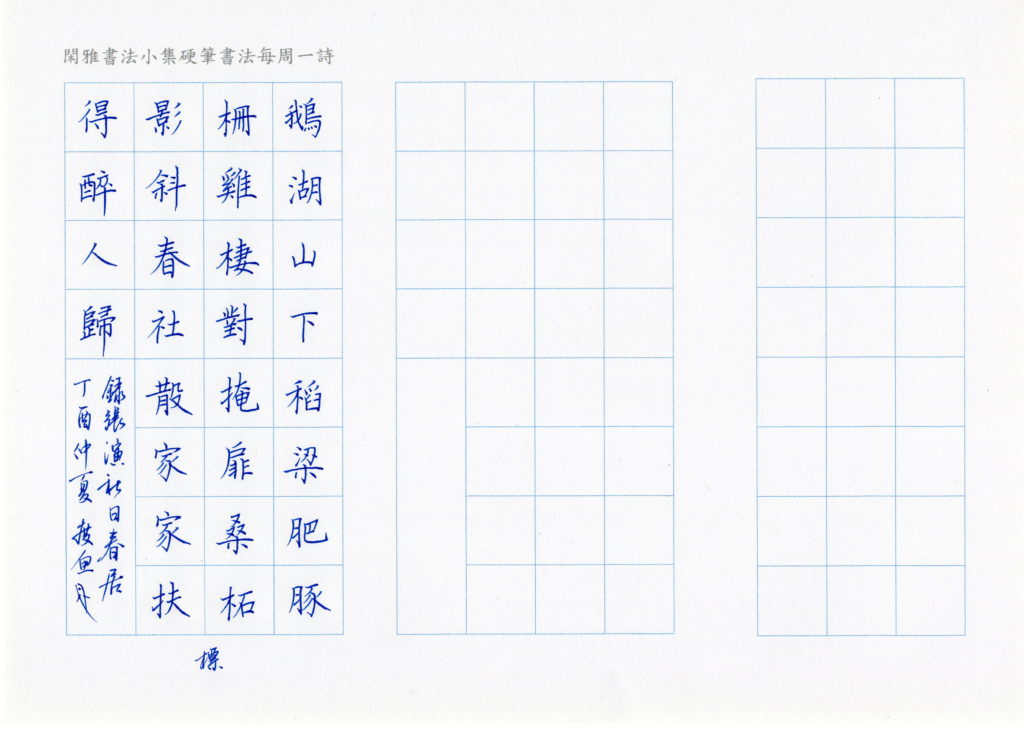 閑雅書法小集硬筆書法每周一詩
鵝湖山下稻梁肥豚
柵雞棲對掩扉桑柘
影斜春社散家家扶
得醉人歸
錄張演社日春居
丁酉仲夏
標